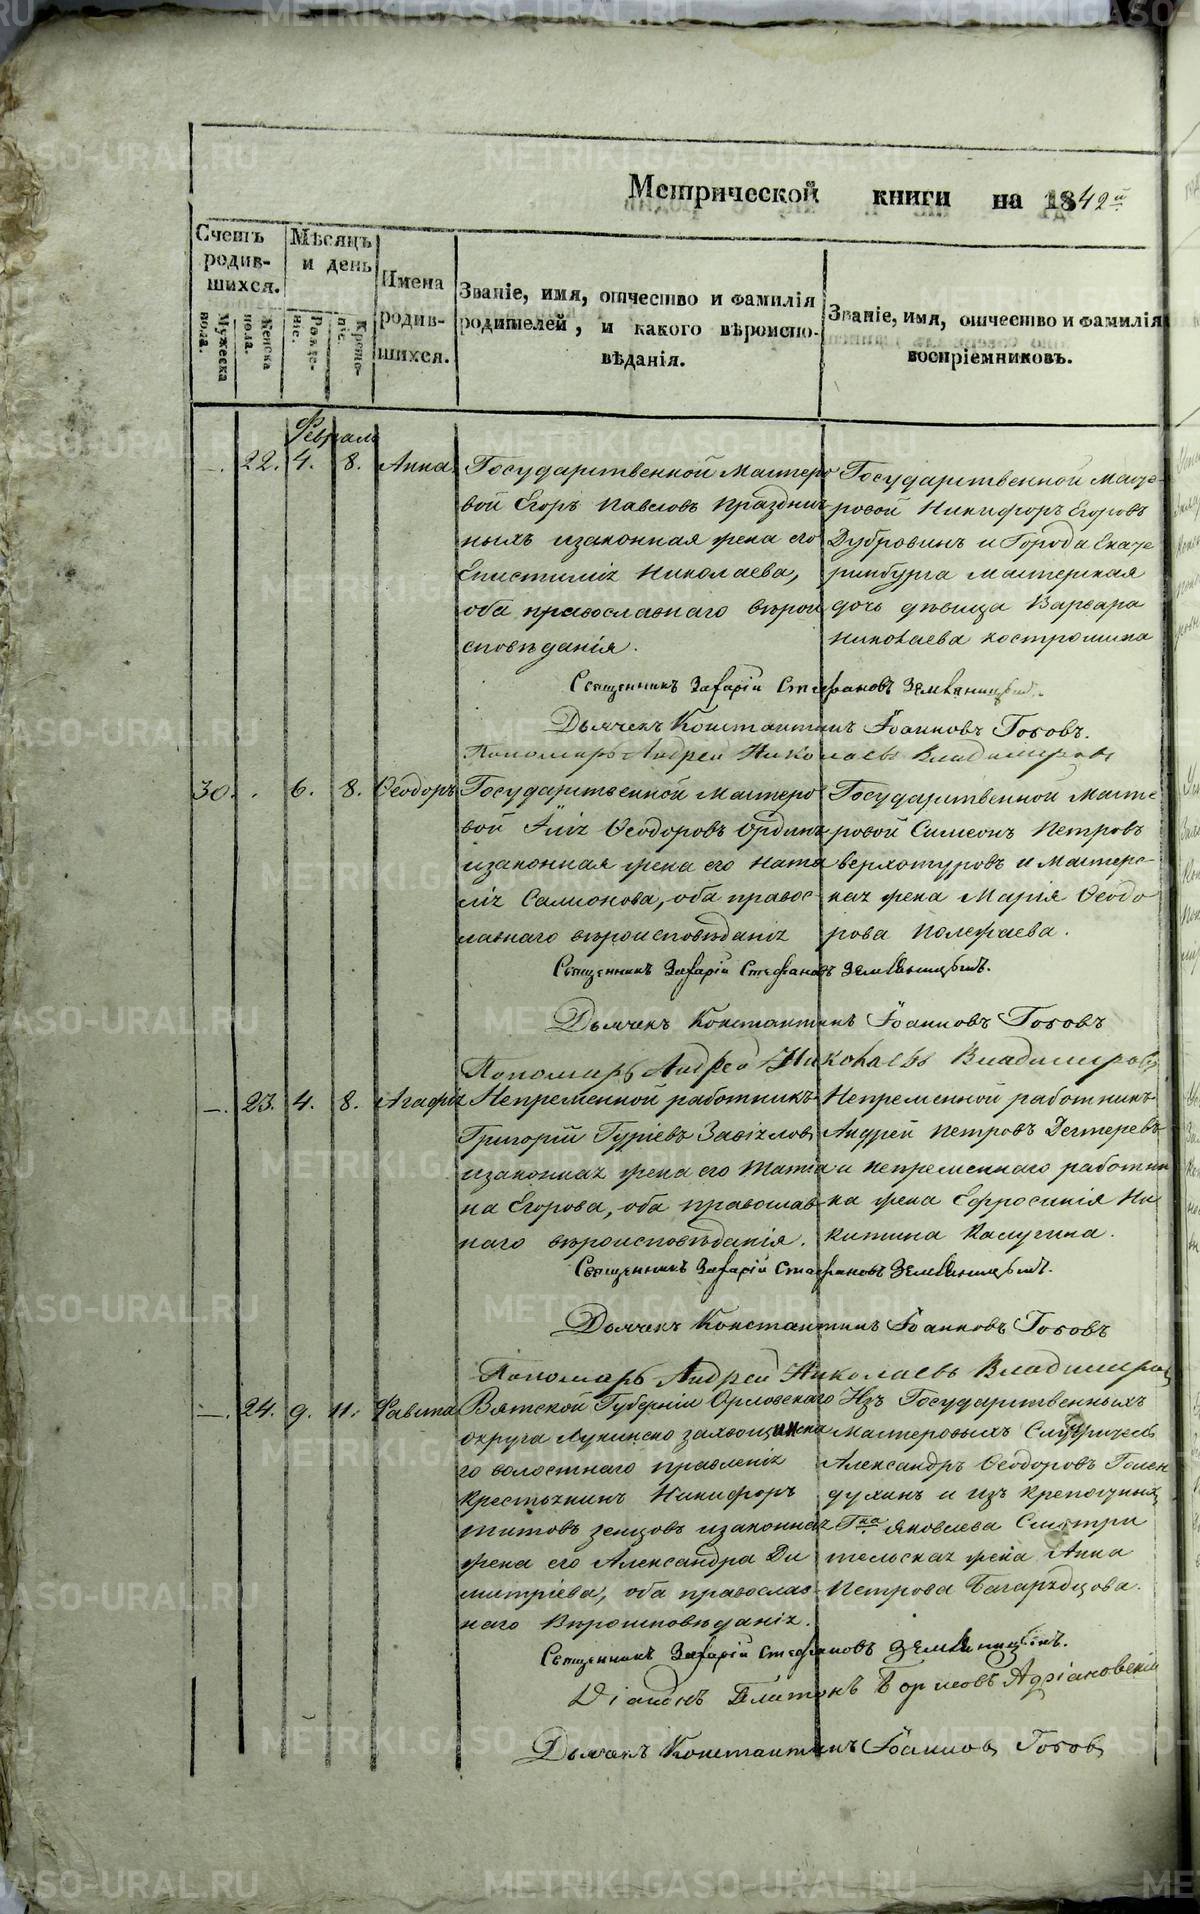 Метрической книги на 1842й
Счетъ родив-шихся.
Мужеска пола.
Женска пола.
Мѣсяцъ и день
Рожде-ніе.
Креще-ніе.
Имена родив-шихся.
Званіе, имя, отчество и фамилія
родителей, и какого вѣроиспо-
вѣданія.
Званіе, имя, отчество и фамилія
воспріемниковъ.
Февраль
—. 22. 4. 8. Анна.
Государственной мастеро
вой Егоръ Павловъ Праздни
ныхъ изаконная жена его
Епистимія Николаева,
оба православнаго вѣрои
сповѣданія.
Государственной масте-
ровой Никифоръ Егоровъ
Дубровинъ и Города Екате
ринбурга мастерская
дочь дѣвица Варвара
Николаева Костромина
Священникъ Захарій Стефановъ Земляницынъ.
Дьячекъ Константинъ Іоанновъ Гововъ.
Пономарь Андрей Николаевъ Владимировъ
30. . 6. 8. Ѳеодоръ
Государственной мастеро
вой Илія Ѳеодоровъ Ординъ
изаконная жена его Ната
лія Самсонова, оба правос-
лавнаго вѣроисповѣданія
Государственной масте
ровой Симеонъ Петровъ
Верхотуровъ и мастерс-
кая жена Марія Ѳеодо
рова Полежаева.
Священникъ Захарій Стефановъ Земляницынъ.
Дьячекъ Константинъ Іоанновъ Гововъ
Пономарь Андрей Николаевъ Владимировъ
—. 23. 4. 8. Агафія
Непременной работникъ
Григорій Гуріевъ Завіяловъ
изаконная жена его Татіа
на Егорова, оба православ
наго вѣроисповѣданія.
Непременной работникъ
Андрей Петровъ Дегтеревъ
и непременнаго работни
ка жена Ефросинія Ни
китина Калугина.
Священникъ Захарій Стефановъ Земляницынъ.
Дьячекъ Константинъ Іоанновъ Гововъ
Пономарь Андрей Николаевъ Владимировъ
—. 24. 9. 11. Фавста
Вятской Губерніи Орловскаго
округа
го волостнаго правленія
крестьянинъ Никифоръ
Титовъ Земцовъ изаконная
жена его Александра Ди
митріева, оба православ-
наго Вѣроисповѣданія.
Изъ Государственныхъ
мастеровыхъ
Александръ Ѳеодоровъ Голен
духинъ и изъ крепостныхъ
Гна Яковлева Смотри
тельская жена Анна
Петрова Багарядцова.
Священникъ Захарій Стефановъ Земляницынъ.
Діаконъ Платонъ Борисовъ Адріановскій
Дьячекъ Константинъ Іоанновъ Гововъ
METRIKI.GASO-URAL.RU